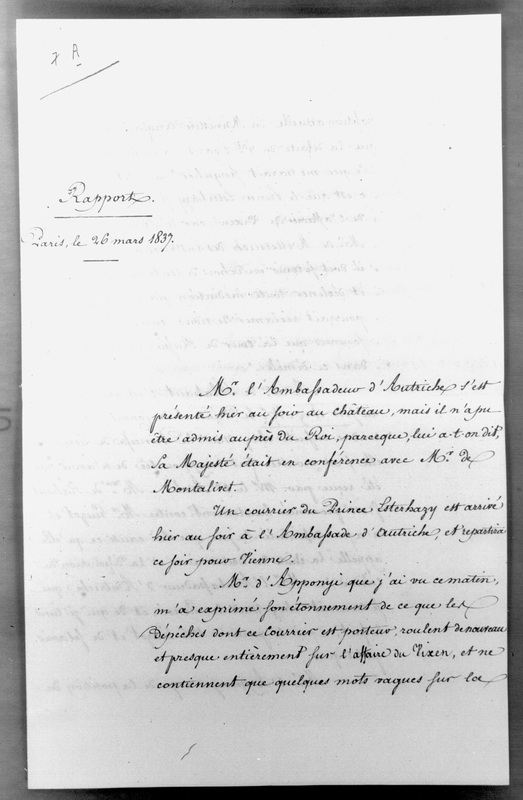 A
Rapport.
Paris, le 26 mars 1837.
Mr. l'Ambassadeur d'Autriche s'est
présenté hier au soir au château, mais il n'a pu
être admis auprès du Roi, parceque, lui a-t-on dit,
Sa Majesté était en conférence avec Mr. de
Montalivet.
Un courrier du Prince Esterhazy est arrivé
hier au soir à l'Ambassade d'Autriche, et repartira
ce soir pour Vienne.
Mr. d'Apponyi que j'ai vu ce matin,
m'a exprimé son étonnement de ce que les
dépêches dont ce Courrier est porteur, roulent de nouveau
et presque entièrement sur l'affaire du Vixen, et ne
contiennent que quelques mots vagues sur la